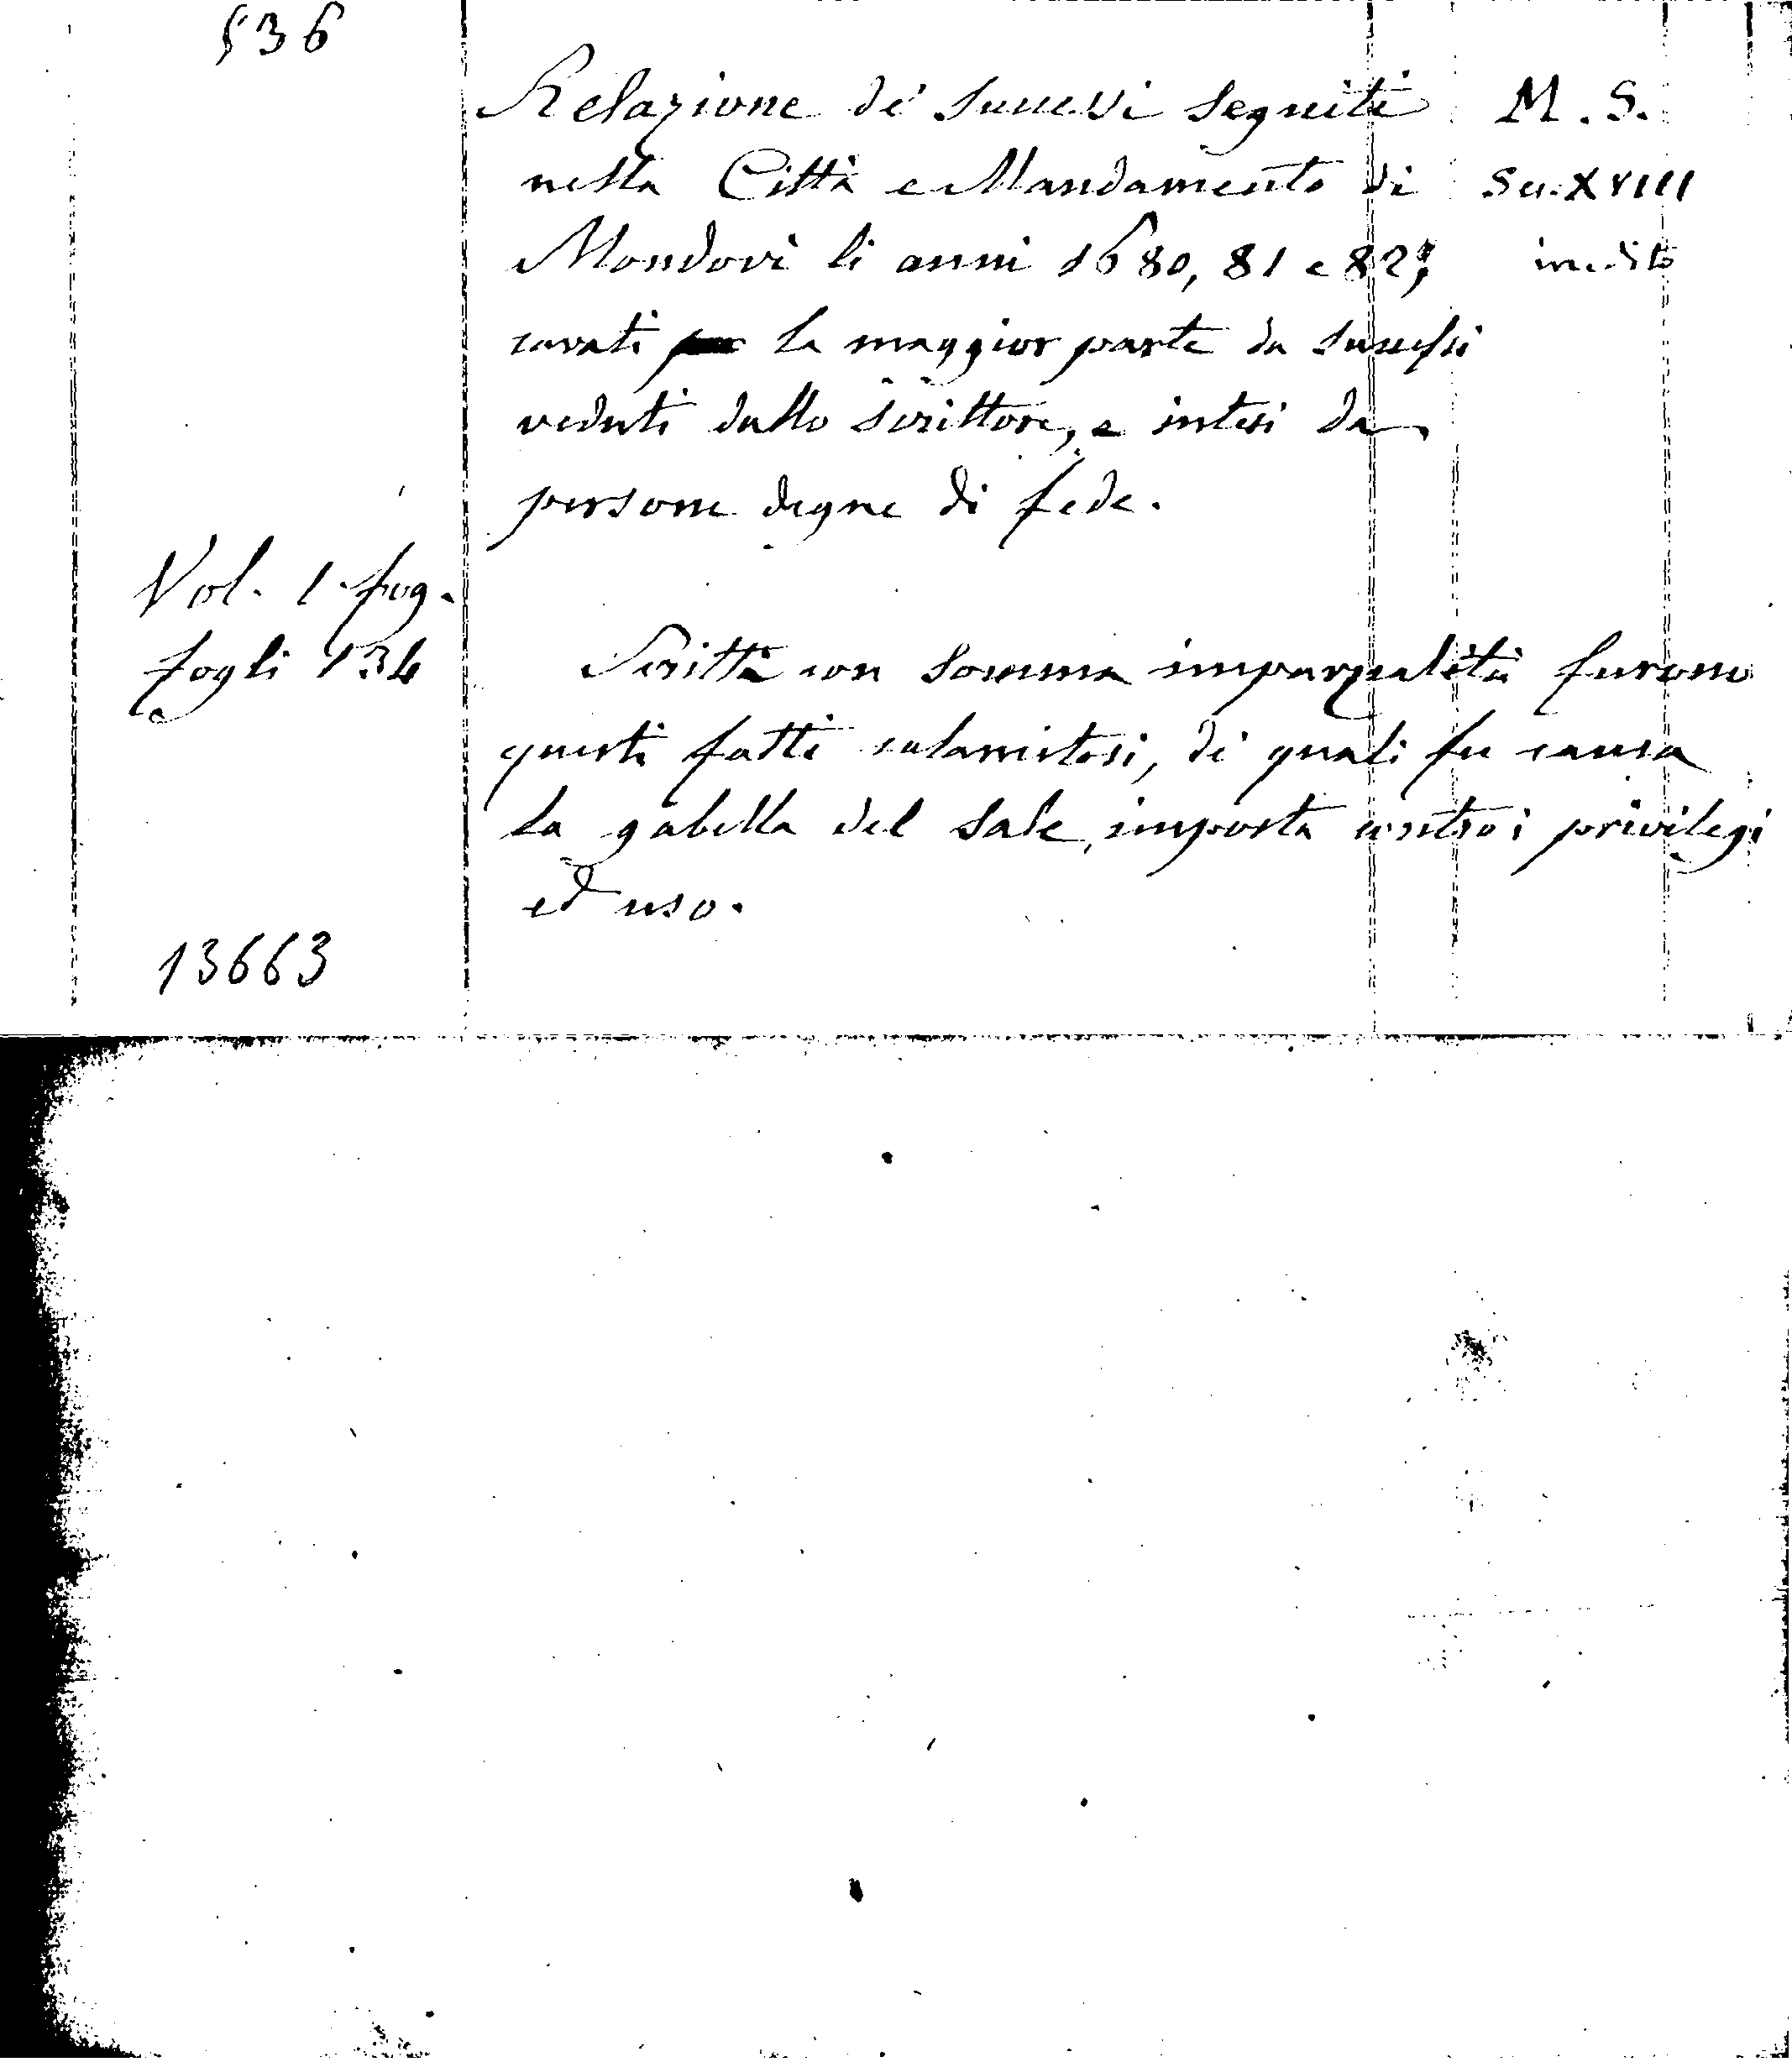 536
Relazione de' successi seguiti M. S.
nella Città e Mandamento di Sec. XVIII
Mondovì li anni 1680, 81 e 82; inedito
cavati la maggior parte da successi
veduti dallo scrittore, e intesi da
persone degne di fede.
Vol. 1 fog.
fogli 134
Scritti con somma imparzialità furono
questi fatti calamitosi, di quali fu causa
la gabella del sale, imposta contro i privilegi
ed uso.
13663